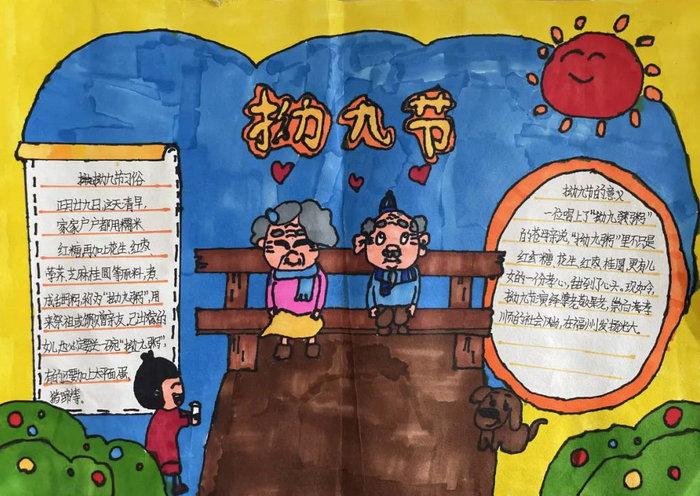 拗九节
拗九节习俗
正月廿九日,这天清早,
家家户户都用糯米
红糖,再加上花生,红枣,
荸荠,芝麻,桂圆等原料,煮
成甜粥,称为"拗九粥",用
来祭祖或馈赠亲友,已出嫁的
女儿也必定要送一碗"拗九粥",
有的还要加上太平面,蛋,
猪蹄等。
拗九节的意义
一位喝上了"拗九粥"
的老母亲说,"拗九粥"里不只是
红糖,花生,红枣,桂圆,更有儿
女的一份孝心,甜到了心头。现如今,
拗九节
的社会风尚,在福州发扬光大。